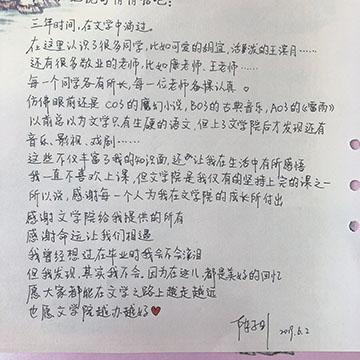 三年时间,在文学中淌过。
在这里认识了很多同学,比如可爱的胡宜,活泼的王溪月……
还有很多敬业的老师,比如唐老师、王老师……
每一个同学各有所长,每一位老师各撰认真。
仿佛眼前还是C03的魔幻小说,B03的古典音乐,A03的《雷雨》
以前总以为文学只有生硬的语文,但上了文学院后才发现还有
音乐、影视、戏剧……
这些不仅丰富了我的知识面,还让我在生活中有所感悟
我一直不喜欢上课,但文学院是我仅有的坚持上完的课之一
所以说,感谢每一个人为我在文学院的成长所付出
感谢文学院给我提供的所有
感谢命运让我们相遇
我曾经想过在毕业时我会不会流泪
但我发现,其实我不会。因为在这儿,都是美好的回忆
愿大家都能在文学之路上越走越远
也愿文学院越办越好
2019.6.2